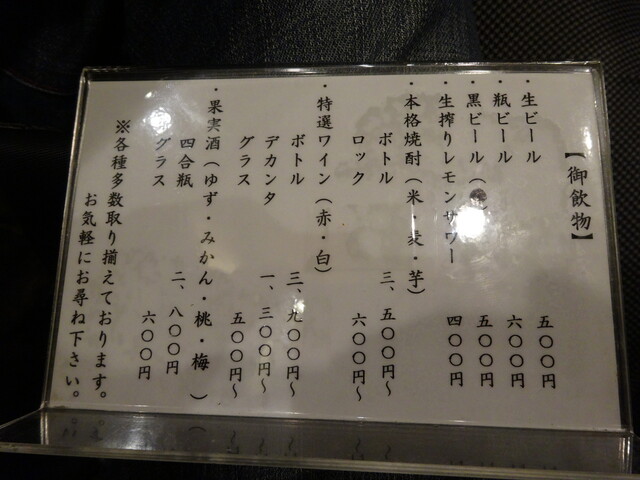 【御飲物】
・生ビール 五〇〇円
・瓶ビール 六〇〇円
・黒ビール( 五〇〇円
・生搾りレモンサワー 四〇〇円
・本格焼酎(米・麦・芋)
ボトル 三、五〇〇円～
ロック 六〇〇円～
・特選ワイン(赤・白)
ボトル 三、九〇〇円～
デカンタ 一、三〇〇円～
グラス 五〇〇円～
・果実酒(ゆず・みかん・桃・梅 )
四合瓶 二、八〇〇円
グラス 六〇〇円
※各種多数取り揃えております。
お気軽にお尋ね下さい。